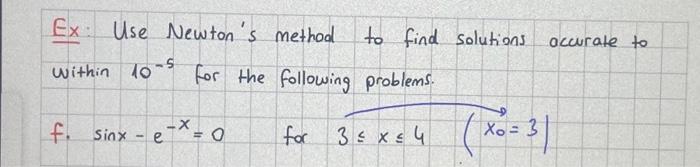 Ex: Use Newton's method to find solutions accurate to
within 10⁻⁵ for the following problems.
f. sinx - e⁻ˣ = 0 for 3 ≤ x ≤ 4 (x₀ = 3)